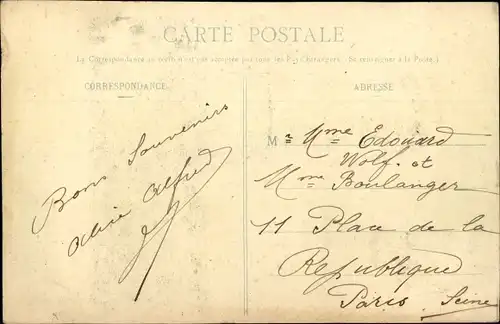 CARTE POSTALE
La Correspondance au verso n'est pas acceptée par tous les Pays Étrangers. (Se renseigner à la Poste.)
CORRESPONDANCE
Bons Souvenirs
Alice Alfred
ADRESSE
M r Mme Edouard
Wolf. et
Mme Boulanger
11 Place de la
Republique
Paris. Seine